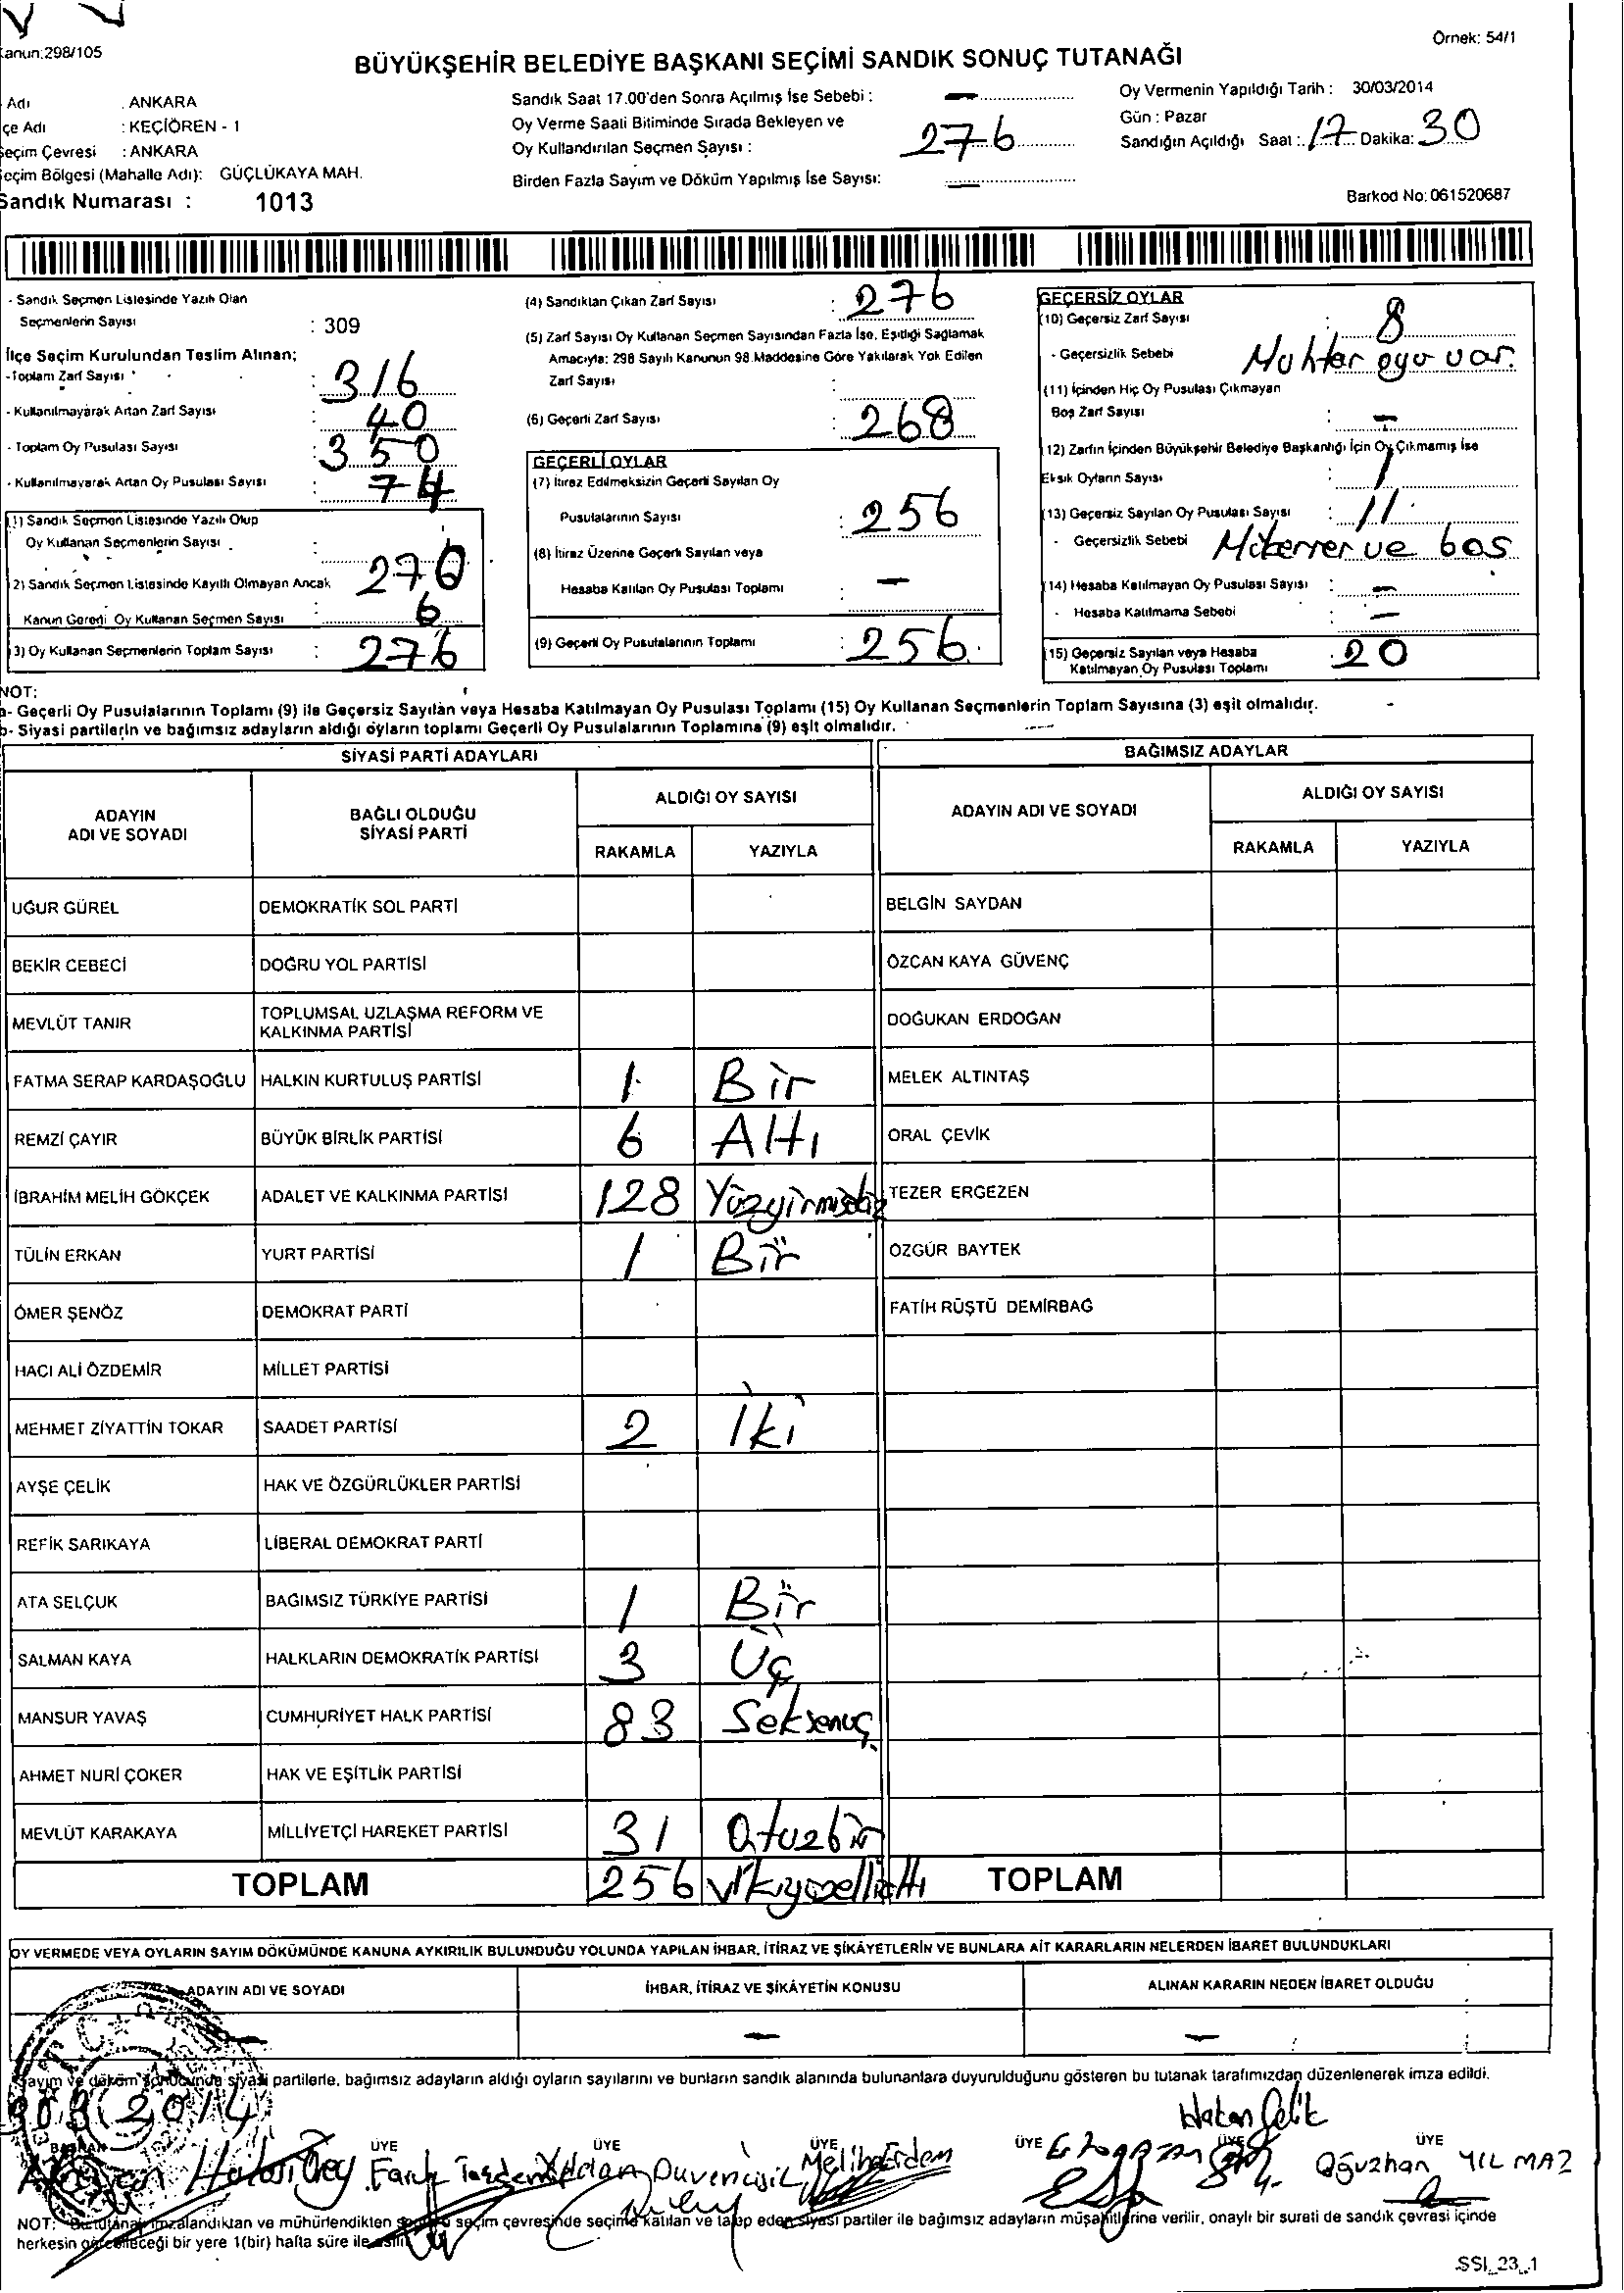 Kanun:298/105
Örnek: 54/1
BÜYÜKŞEHİR BELEDİYE BAŞKANI SEÇİMİ SANDIK SONUÇ TUTANAĞI
Adı : ANKARA
çe Adı : KEÇİÖREN - 1
Seçim Çevresi : ANKARA
eçim Bölgesi (Mahalle Adı): GÜÇLÜKAYA MAH.
Sandık Numarası : 1013
Sandık Saat 17.00'den Sonra Açılmış İse Sebebi : –
Oy Verme Saati Bitiminde Sırada Bekleyen ve
Oy Kullandırılan Seçmen Sayısı : 276
Birden Fazla Sayım ve Döküm Yapılmış İse Sayısı: –
Oy Vermenin Yapıldığı Tarih : 30/03/2014
Gün : Pazar
Sandığın Açıldığı Saat : 17 Dakika: 30
Barkod No: 061520687
- Sandık Seçmen Listesinde Yazılı Olan
Seçmenlerin Sayısı : 309
İlçe Seçim Kurulundan Teslim Alınan;
-Toplam Zarf Sayısı : 316
- Kullanılmayarak Artan Zarf Sayısı : 40
- Toplam Oy Pusulası Sayısı : 350
- Kullanılmayarak Artan Oy Pusulası Sayısı : 74
(1) Sandık Seçmen Listesinde Yazılı Olup
Oy Kullanan Seçmenlerin Sayısı : 270
2) Sandık Seçmen Listesinde Kayıtlı Olmayan Ancak
Kanun Gereği Oy Kullanan Seçmen Sayısı : 6
3) Oy Kullanan Seçmenlerin Toplam Sayısı : 276
(4) Sandıktan Çıkan Zarf Sayısı : 276
(5) Zarf Sayısı Oy Kullanan Seçmen Sayısından Fazla İse, Eşitliği Sağlamak
Amacıyla; 298 Sayılı Kanunun 98.Maddesine Göre Yakılarak Yok Edilen
Zarf Sayısı :
(6) Geçerli Zarf Sayısı : 268
GEÇERLİ OYLAR
(7) İtiraz Edilmeksizin Geçerli Sayılan Oy
Pusulalarının Sayısı : 256
(8) İtiraz Üzerine Geçerli Sayılan veya
Hesaba Katılan Oy Pusulası Toplamı : –
(9) Geçerli Oy Pusulalarının Toplamı : 256
GEÇERSİZ OYLAR
(10) Geçersiz Zarf Sayısı : 8
- Geçersizlik Sebebi Muhtar oyu var.
(11) İçinden Hiç Oy Pusulası Çıkmayan
Boş Zarf Sayısı : –
12) Zarfın İçinden Büyükşehir Belediye Başkanlığı İçin Oy Çıkmamış İse
Eksik Oyların Sayısı : 1
(13) Geçersiz Sayılan Oy Pusulası Sayısı : 11
- Geçersizlik Sebebi Mükerrer ve boş
14) Hesaba Katılmayan Oy Pusulası Sayısı : –
- Hesaba Katılmama Sebebi : –
15) Geçersiz Sayılan veya Hesaba
Katılmayan Oy Pusulası Toplamı : 20
NOT:
a- Geçerli Oy Pusulalarının Toplamı (9) ile Geçersiz Sayılan veya Hesaba Katılmayan Oy Pusulası Toplamı (15) Oy Kullanan Seçmenlerin Toplam Sayısına (3) eşit olmalıdır.
b- Siyasi partilerin ve bağımsız adayların aldığı oyların toplamı Geçerli Oy Pusulalarının Toplamına (9) eşit olmalıdır.
SİYASİ PARTİ ADAYLARI BAĞIMSIZ ADAYLAR
ADAYIN ADI VE SOYADI
BAĞLI OLDUĞU SİYASİ PARTİ
ALDIĞI OY SAYISI
RAKAMLA YAZIYLA
ADAYIN ADI VE SOYADI
ALDIĞI OY SAYISI
RAKAMLA YAZIYLA
UĞUR GÜREL DEMOKRATİK SOL PARTİ BELGİN SAYDAN
BEKİR CEBECİ DOĞRU YOL PARTİSİ ÖZCAN KAYA GÜVENÇ
MEVLÜT TANIR TOPLUMSAL UZLAŞMA REFORM VE KALKINMA PARTİSİ DOĞUKAN ERDOĞAN
FATMA SERAP KARDAŞOĞLU HALKIN KURTULUŞ PARTİSİ 1 Bir MELEK ALTINTAŞ
REMZİ ÇAYIR BÜYÜK BİRLİK PARTİSİ 6 Altı ORAL ÇEVİK
İBRAHİM MELİH GÖKÇEK ADALET VE KALKINMA PARTİSİ 128 Yüzyirmisekiz TEZER ERGEZEN
TÜLİN ERKAN YURT PARTİSİ 1 Bir ÖZGÜR BAYTEK
ÖMER ŞENÖZ DEMOKRAT PARTİ FATİH RÜŞTÜ DEMİRBAĞ
HACI ALİ ÖZDEMİR MİLLET PARTİSİ
MEHMET ZİYATTİN TOKAR SAADET PARTİSİ 2 İki
AYŞE ÇELİK HAK VE ÖZGÜRLÜKLER PARTİSİ
REFİK SARIKAYA LİBERAL DEMOKRAT PARTİ
ATA SELÇUK BAĞIMSIZ TÜRKİYE PARTİSİ 1 Bir
SALMAN KAYA HALKLARIN DEMOKRATİK PARTİSİ 3 Üç
MANSUR YAVAŞ CUMHURİYET HALK PARTİSİ 83 Seksenüç
AHMET NURİ ÇOKER HAK VE EŞİTLİK PARTİSİ
MEVLÜT KARAKAYA MİLLİYETÇİ HAREKET PARTİSİ 31 Otuzbir
TOPLAM 256 İkiyüzellialtı TOPLAM
OY VERMEDE VEYA OYLARIN SAYIM DÖKÜMÜNDE KANUNA AYKIRILIK BULUNDUĞU YOLUNDA YAPILAN İHBAR, İTİRAZ VE ŞİKÂYETLERİN VE BUNLARA AİT KARARLARIN NELERDEN İBARET BULUNDUKLARI
ADAYIN ADI VE SOYADI İHBAR, İTİRAZ VE ŞİKÂYETİN KONUSU ALINAN KARARIN NEDEN İBARET OLDUĞU
– – –
Sayım ve döküm sonucunda siyasi partilerle, bağımsız adayların aldığı oyların sayılarını ve bunların sandık alanında bulunanlara duyurulduğunu gösteren bu tutanak tarafımızdan düzenlenerek imza edildi.
2014
Hakan Çelik
BAŞKAN ÜYE ÜYE ÜYE ÜYE ÜYE ÜYE
Faruk Meliha Erdem Oğuzhan YILMAZ
NOT: Bu tutanak imzalandıktan ve mühürlendikten sonra seçim çevresinde seçime katılan ve talep eden siyasi partiler ile bağımsız adayların müşahitlerine verilir, onaylı bir sureti de sandık çevresi içinde
herkesin görebileceği bir yere 1(bir) hafta süre ile asılır.
SSI_23_1